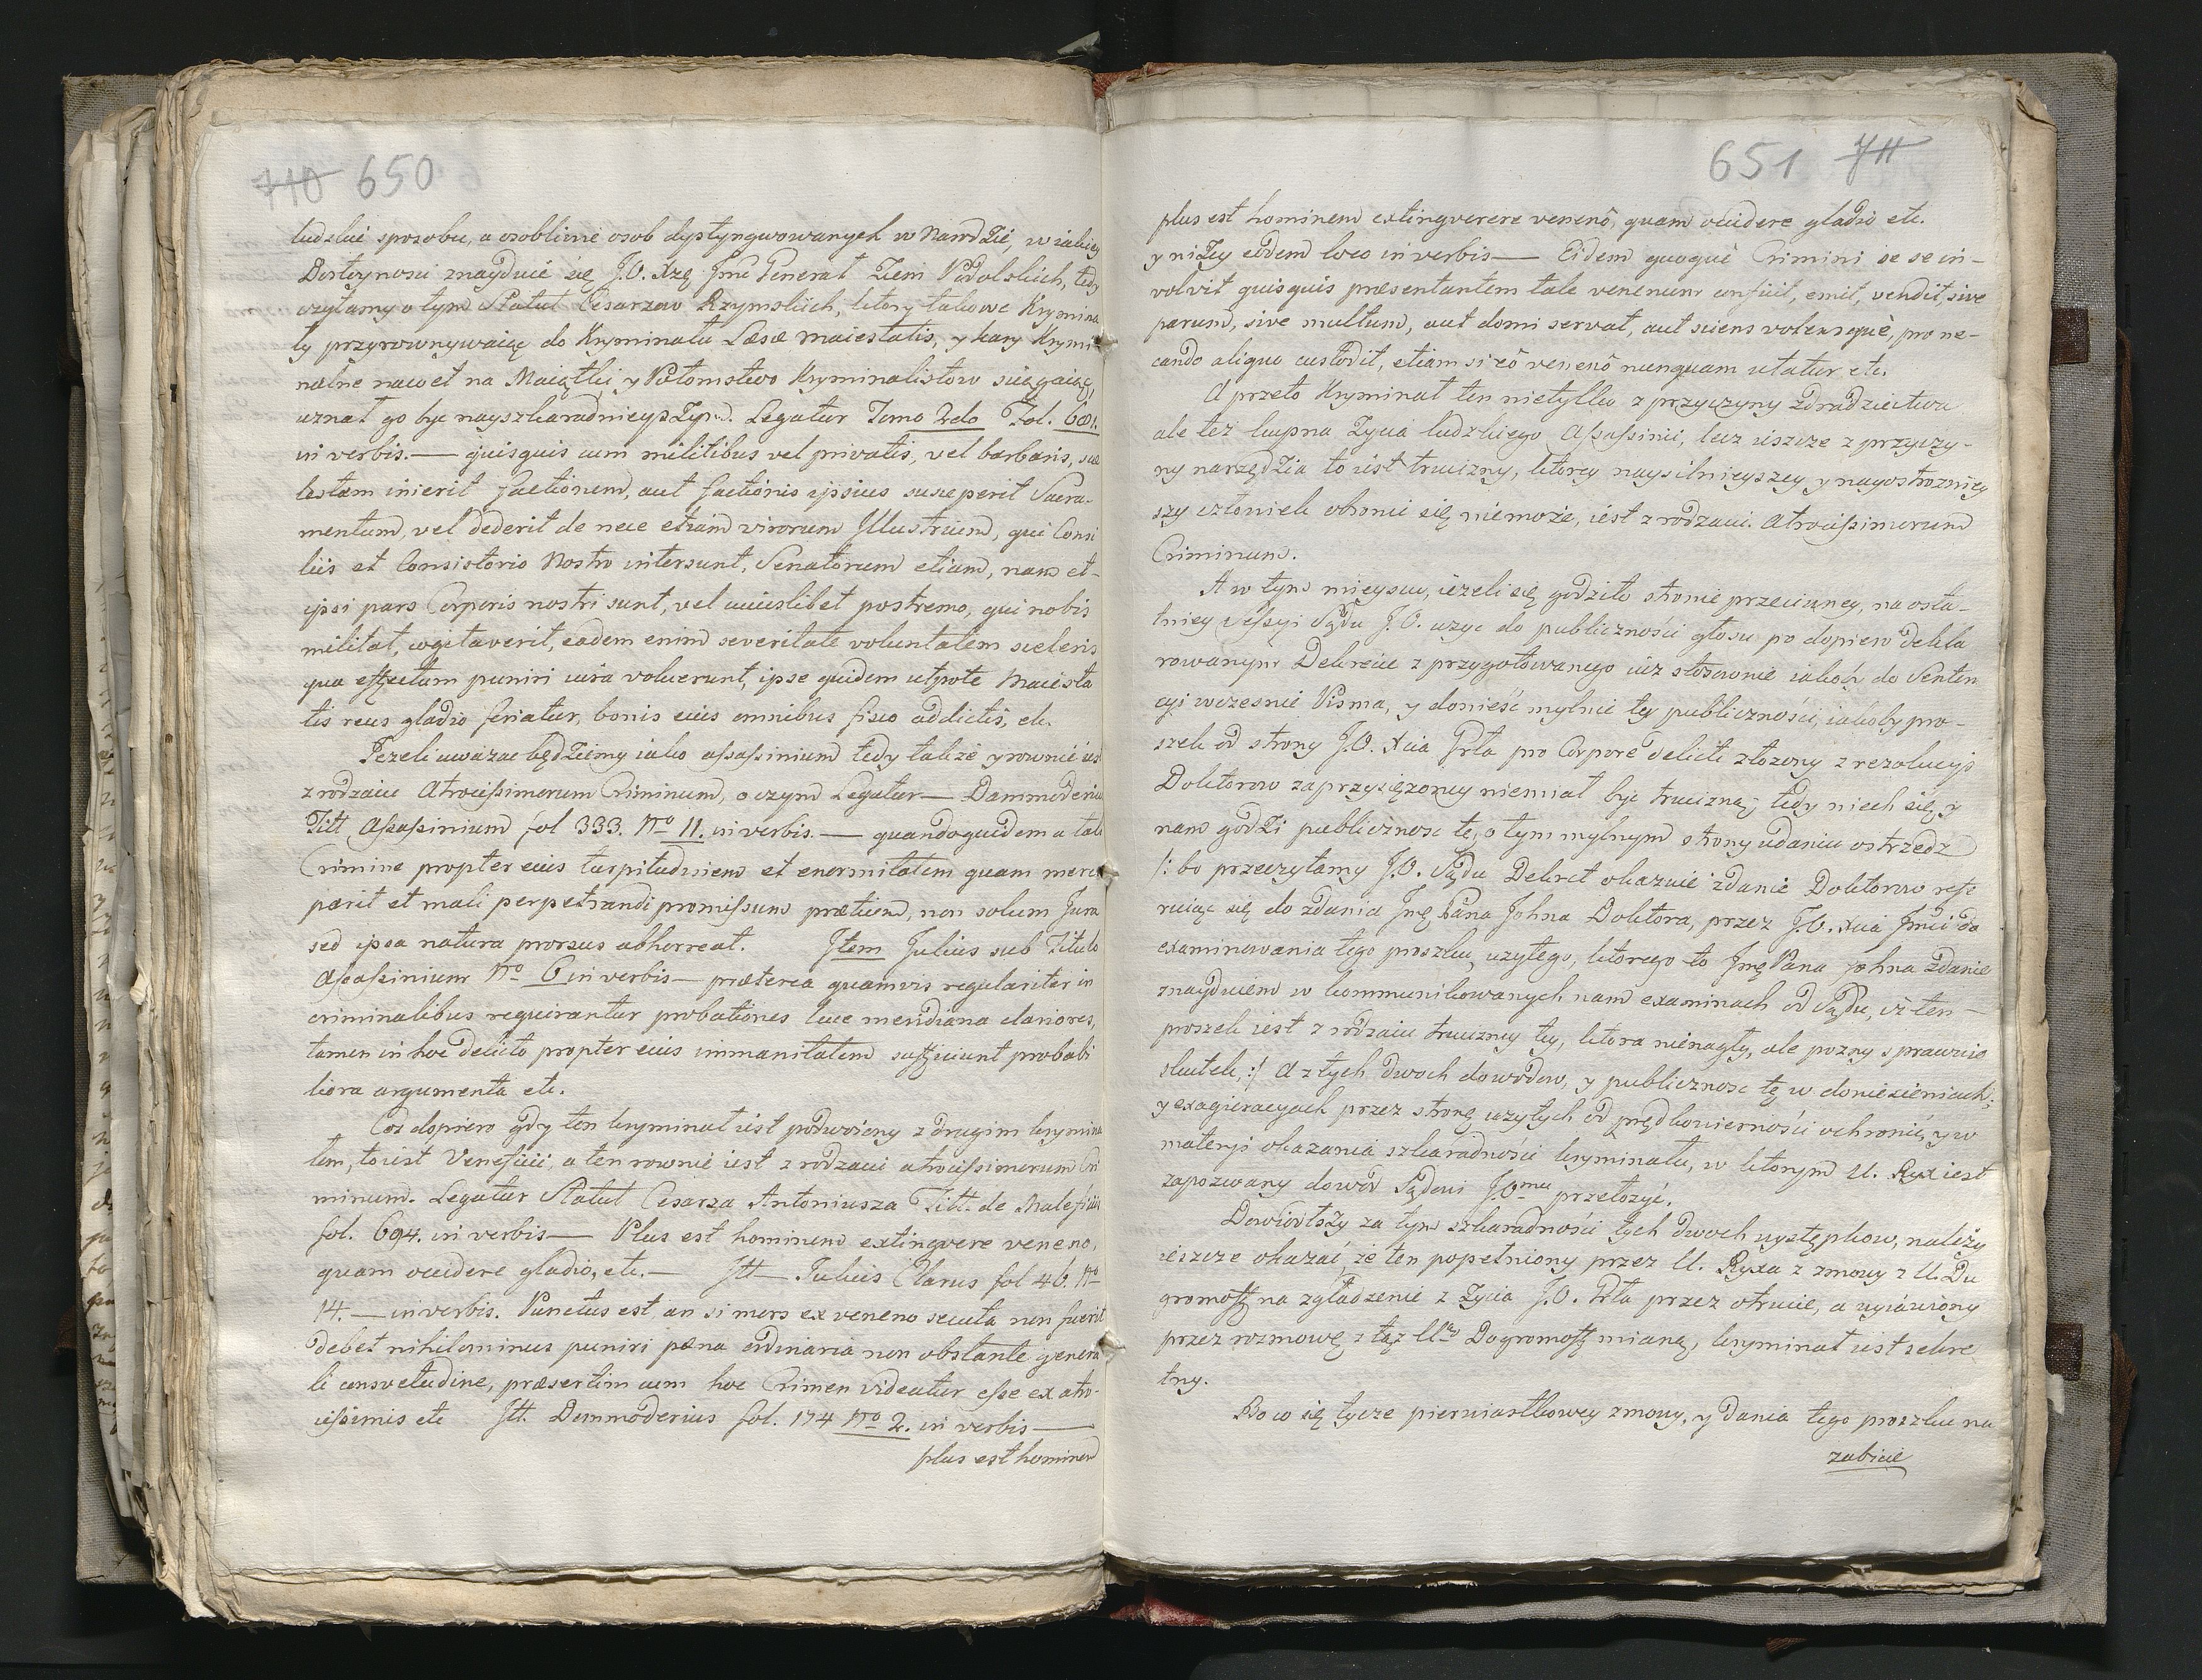 710 650
ludzkie sposobu, a osobliwie osob dystyngwowanych w Narodzie, w iakiey
Dostoynosci znayduie się J.O. Xżę Jmć Generał Ziem Podolskich, tedy
czytamy o tym Statut Cesarzow Rzymskich, ktory takowe Krymina
ły przyrownywaiąc do Kryminału Læsæ maiestatis, y kary Krymi-
nalne nawet na Maiątki y Potomstwo Kryminalistow sciągaiąc,
uznał go byc nayszkaradnieyszym. Legatur Tomo 2do Fol. 681.
in verbis. — quisquis cum militibus vel privatis, vel barbaris, sce
lestam inierit factionem, aut factionis ipsius susceperit Sacra-
mentum, vel dederit de nece etiam virorum Illustrium, qui Consi
liis et Consistorio Nostro intersunt, Senatorum etiam, nam et-
ipsi pars Corporis nostri sunt, vel cuiuslibet postremo, qui nobis
militat, cogitaverit, eadem enim severitate voluntatem sceleris
qua effectum puniri iura voluerunt, ipse quidem utpote Maiesta
tis reus gladio feriatur, bonis eius omnibus fisco addictis, etc.
Jezeli uwazac będziemy iako assassinium tedy takze y rownie iest
z rodzaiu Atrocissimorum Criminum, o czym Legatur — Dammoderius
Titt Assassinium fol 333. No 11. in verbis. — quandoquidem a tali
Crimine propter eius turpitudinem et enormitatem quam mere
parit et mali perpetrandi promissum prætium, non solum Jura
sed ipsa natura prorsus abhorreat. Item Julius sub Titulo
Assassinium No 6 in verbis — præterea quamvis regulariter in
criminalibus requirantur probationes luce meridiana clariores,
tamen in hoc delicto propter eius immanitatem sufficiunt probabi
liora argumenta etc.
Coz dopiero gdy ten kryminał iest podwoiony z drugim krymina
łem, to iest Veneficii, a ten rownie iest z rodzaiu atrocissimorum Cri
minum. Legatur Statut Cesarza Antoniusza Titt. de Maleficiis
fol. 694. in verbis — Plus est hominem extingvere veneno,
quam occidere gladio, etc. — Itt — Julius Clarus fol 46 No
14. — in verbis. Punctus est, an si mors ex veneno secuta non fuerit
debet nihilominus puniri pæna ordinaria non obstante genera
li consvetudine, præsertim cum hoc Crimen videatur esse ex atro-
cissimis etc Itt. Demmoderius fol. 174 No 2. in verbis —
plus est hominem
651 711
plus est hominem extingverere venenô, quam occidere gladio etc.
y niżey eôdem loco in verbis — Eidem quoquè Crimini se se in-
volvit quisquis præsentantem tale venenum conficit, emit, vendit, sive
parum, sive multum, aut domi servat, aut sciens volensquè, pro ne-
cando aliquo custodit, etiam si eô venenô nunquam utatur etc.
A przeto Kryminał ten nietylko z przyczyny zdradziectwa
ale też kupna Zycia ludzkiego Assassinii, lecz ieszcze z przyczy-
ny narzędzia to iest trucizny, ktorey naysilnieyszey y nayostrozniey
szy człowiek ohronic się niemoże, iest z rodzaiu Atrocissimorum
Criminum.
A w tym mieyscu, ieżeli się godziło stronie przeciwney, na osta-
tniey Sessyi Sądu J.O. uzyc do publiczności głosu po dopiero dekla
rowanym Dekrecie z przygotowanego iuż stosownie iakoś do Senten
cyi wczesnie Pisma, y donieść mylnie tey publiczności, iakoby pro-
szek od strony J.O. Xcia Jrła pro Corpore delicti złożony z rezolucyi
Doktorow zaprzysięzoney niemiał byc trucizną, tedy niech się y
nam godzi publicznosc tę, o tym mylnym strony udaniu ostrzedz
/: bo przeczytamy J.O. Sądu Dekret okazuie zdanie Doktorow refe
ruiąc się do zdania Jmę Pana Johna Doktora, przez J.O. Xcia Jmci do
examinowania tego proszku, uzytego, ktorego to Jmę Pana Johna zdanie
znayduiem w kommunikowanych nam examinach od Sądu, iż ten —
proszek iest z rodzaiu trucizny tey, ktora nienagły, ale pozny sprawuie
skutek, :/ A z tych dwoch dowodow, y publicznosc tę w doniesieniach
y exagieracyach przez stronę uzytych od prędkowierności ochronić, y w
materyi okazania szkaradności kryminału, w ktorym U. Ryx iest
zapozwany dowod Sądowi J.Omu przełożyć.
Dowiodłszy za tym szkaradności tych dwoch występkow, należy
ieszcze okazać, że ten popełniony przez U. Ryxa z zmowy z U. Du
gromoff na zgładzenie z Zycia J.O. Jrła przez otrucie, a wyiawiony
przez rozmowę z tąż Uną Dogromoff mianą, kryminał iest sekre
tny.
Bo co się tycze pierwiastkowey zmowy, y dania tego proszku na
zabicie